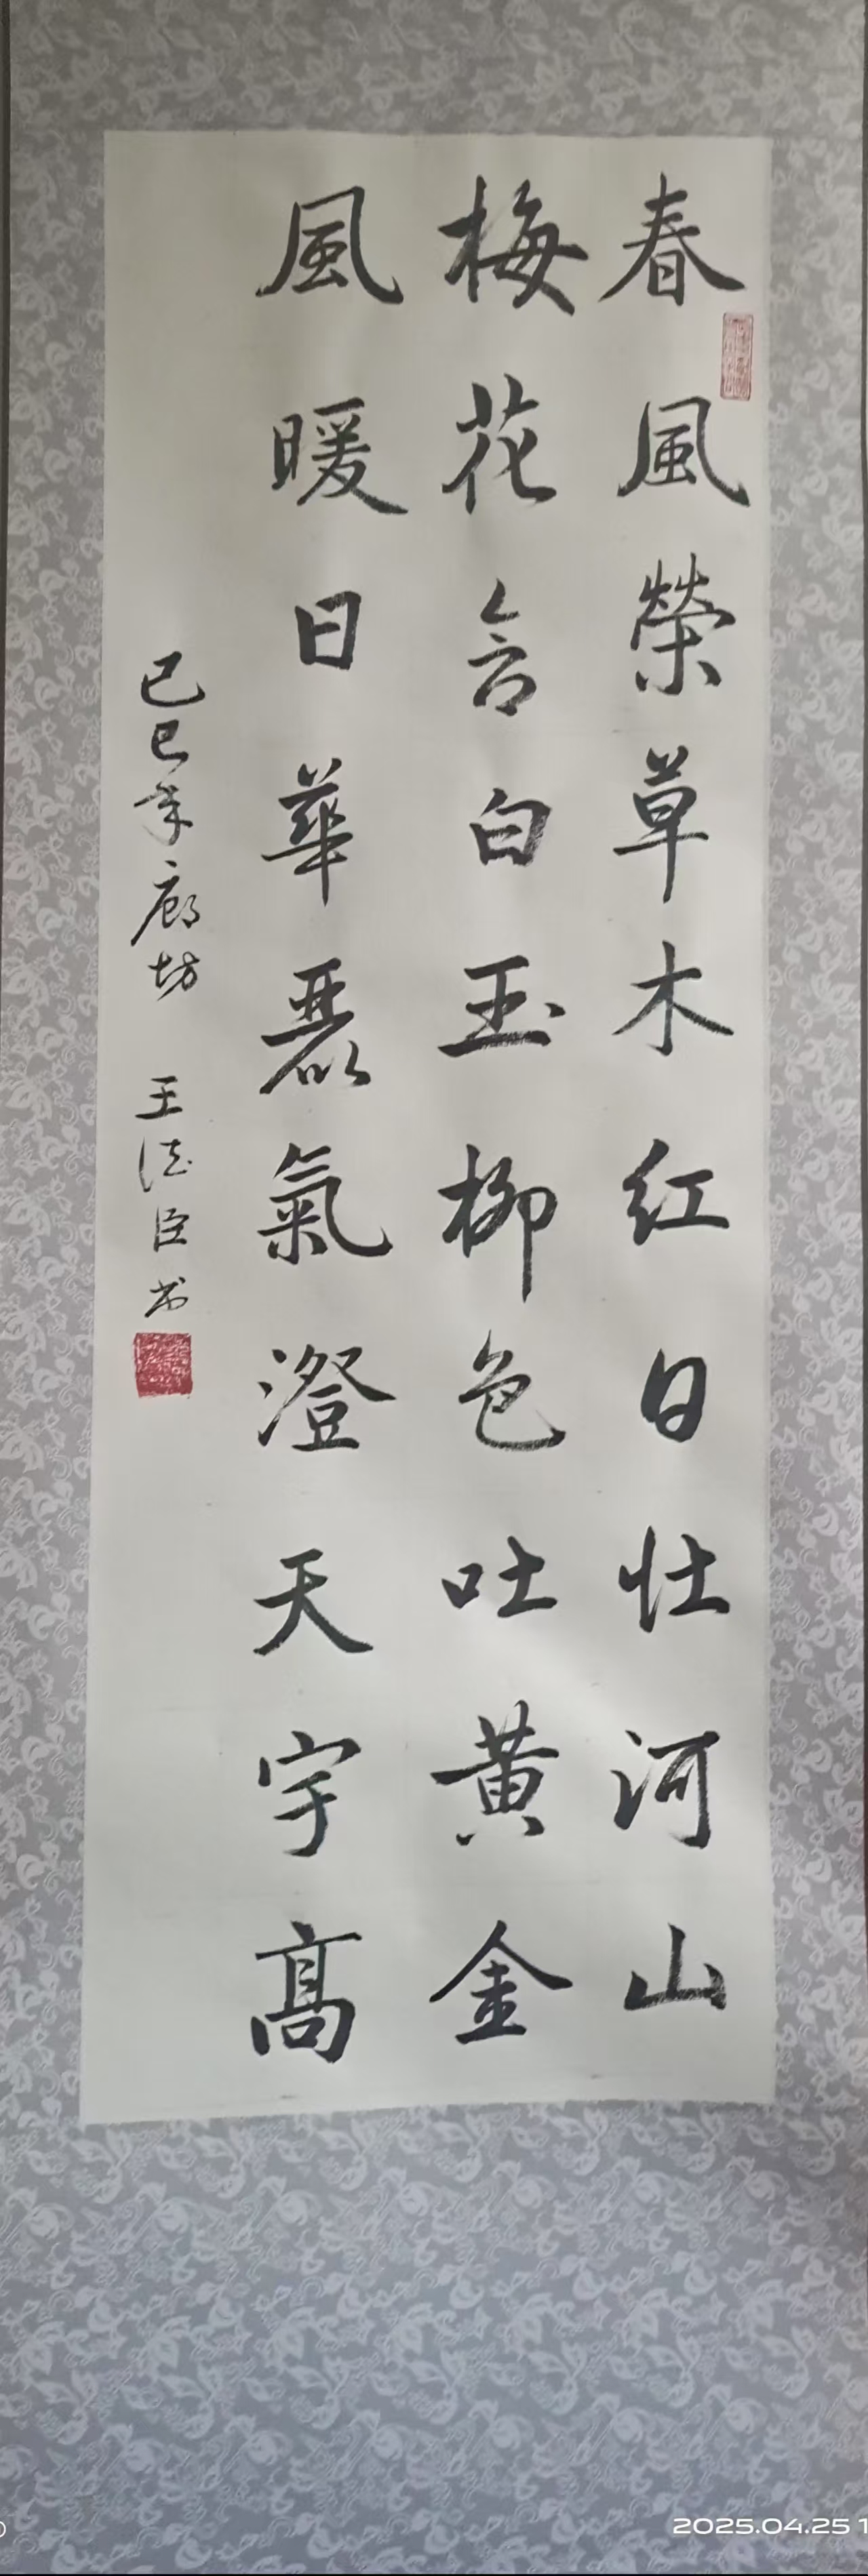 春風榮草木红日壮河山
梅花含白玉柳色吐黄金
風暖日華麗氣澄天宇高
己巳年廊坊 王德臣书
2025.04.25 1